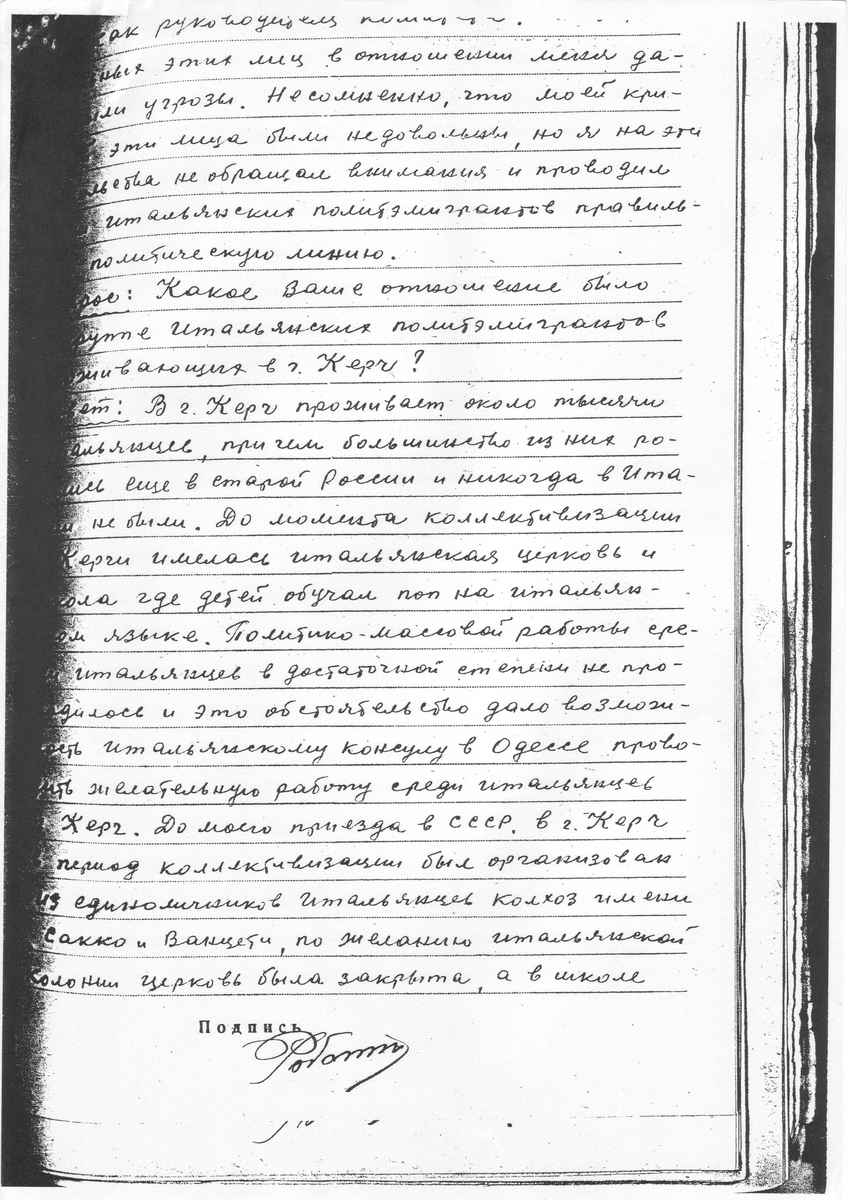 как руководителя
этих лиц в отношении меня да-
угрозы. Несомненно, что моей кри-
эти лица были недовольны, но я на эти
не обращал внимания и проводил
итальянских политэмигрантов правиль-
политическую линию.
рос: Какое Ваше отношение было
руппе итальянских политэмигрантов
живающих в г. Керч?
ет: В г. Керч проживает около тысячи
альянцев, при чем большинство из них ро-
ись еще в старой России и никогда в Ита-
и не были. До момента коллективизации
Керчи имелась итальянская церковь и
кола где детей обучал поп на итальян-
ом языке. Политико-массовой работы сре-
и итальянцев в достаточной степени не про-
дилось и это обстоятельство дало возмож-
ость итальянскому консулу в Одессе прово-
ить желательную работу среди итальянцев
Керч. До моего приезда в СССР. в г. Керч
период коллективизации был организован
из единоличников итальянцев колхоз имени
Сакко и Ванцети, по желанию итальянской
колонии церковь была закрыта, а в школе
Подпись
Роботти